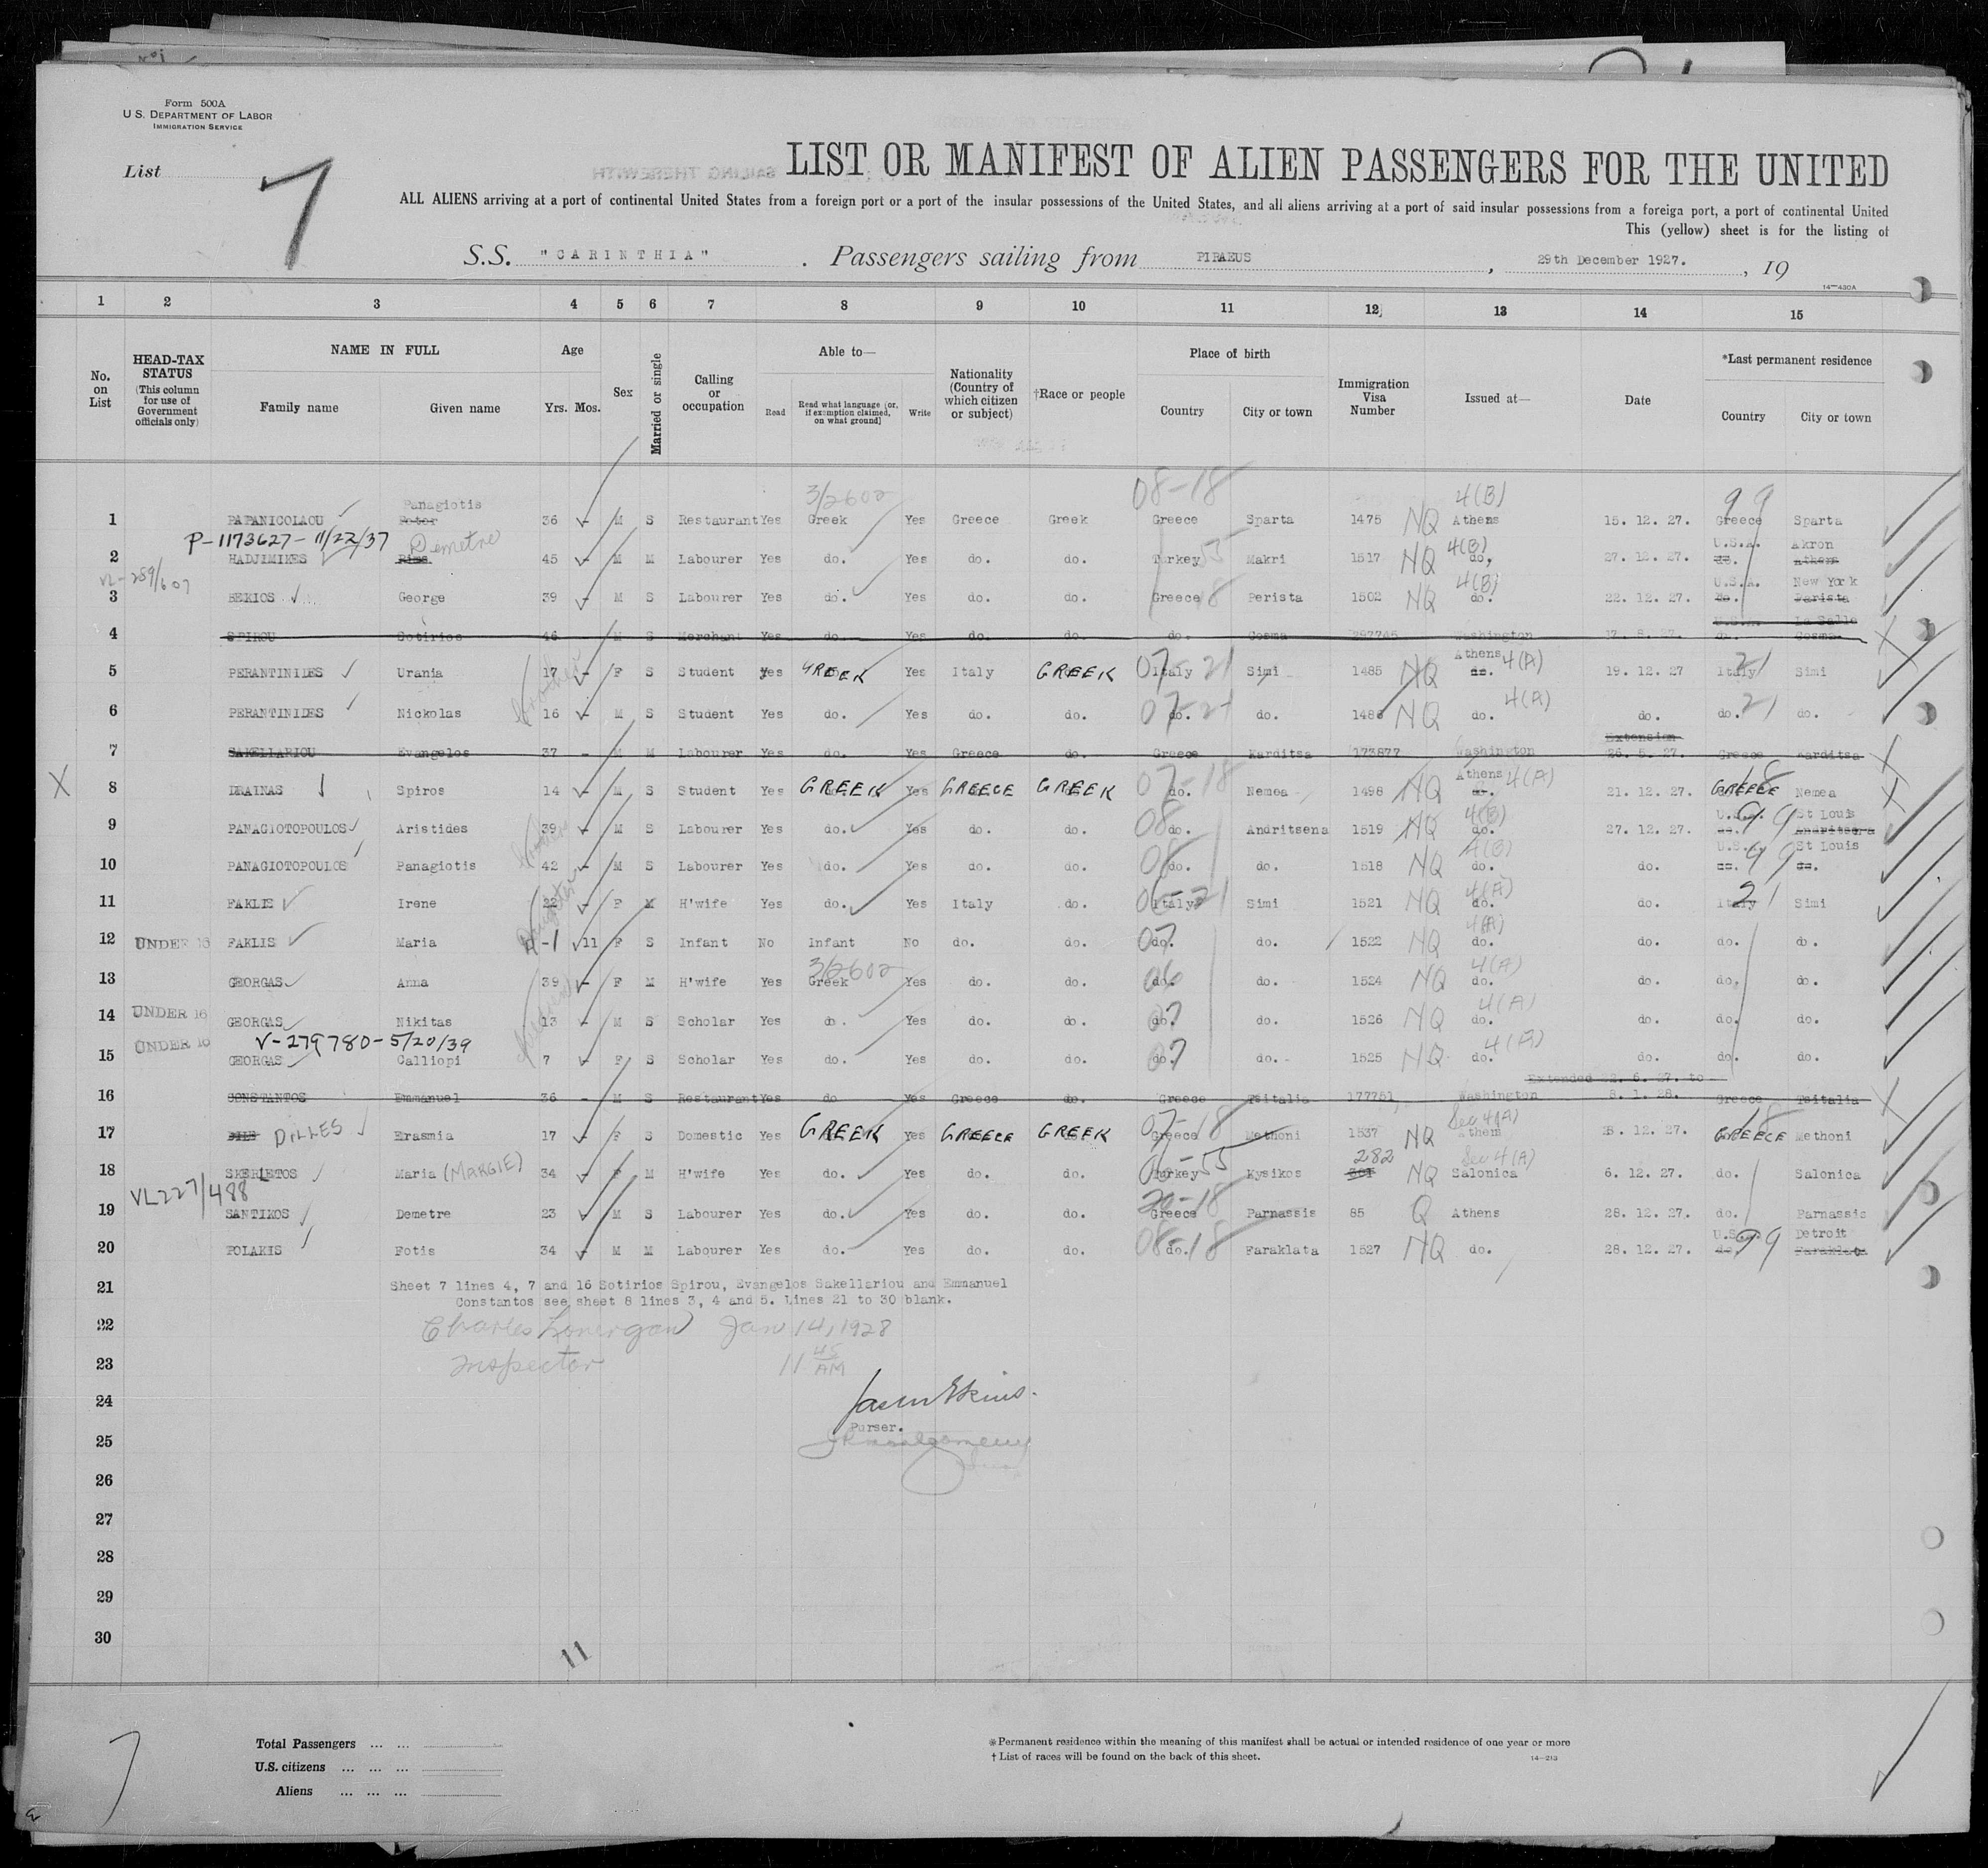 Form 500A
U.S. DEPARTMENT OF LABOR
IMMIGRATION SERVICE
List 7
LIST OR MANIFEST OF ALIEN PASSENGERS FOR THE UNITED
ALL ALIENS arriving at a port of continental United States from a foreign port or a port of the insular possessions of the United States, and all aliens arriving at a port of said insular possessions from a foreign port, a port of continental United
This (yellow) sheet is for the listing of
S.S. "CARINTHIA" . Passengers sailing from PIRAEUS , 29th December 1927. , 19
14—430A
1 2 3 4 5 6 7 8 9 10 11 12 13 14 15
No. on List
HEAD-TAX STATUS (This column for use of Government officials only)
NAME IN FULL Family name Given name
Age Yrs. Mos.
Sex
Married or single
Calling or occupation
Able to— Read Read what language (or, if exemption claimed, on what ground) Write
Nationality (Country of which citizen or subject)
†Race or people
Place of birth Country City or town
Immigration Visa Number
Issued at—
Date
*Last permanent residence Country City or town
Panagiotis 3/2602 08-18 4(B) 99
1 PAPANICOLAOU Peter 36 - M S Restaurant Yes Greek Yes Greece Greek Greece Sparta 1475 NQ Athens 15. 12. 27. Greece Sparta
P-1173627-11/22/37 Demetre 4(B) U.S.A. Akron
2 HADJIMIKES 45 - M M Labourer Yes do. Yes do. do. Turkey 55 Makri 1517 NQ do. 27. 12. 27. do. Athens
VL-289/607 4(B) U.S.A. New York
3 BEKIOS George 39 - M S Labourer Yes do. Yes do. do. Greece Perista 1502 NQ do. 22. 12. 27. do. Parista
U.S.A. La Salle
4 SPIROU Sotirios 46 M S Merchant Yes do. Yes do. do. do. Cosma Washington do. Cosma
Athens 4(A)
5 PERANTINIDES Urania 17 - F S Student Yes GREEK Yes Italy GREEK 07-21 Italy Simi 1485 NQ do. 19. 12. 27 Italy 21 Simi
4(A)
6 PERANTINIDES Nickolas 16 - M S Student Yes do. Yes do. do. 07-21 do. do. 1486 NQ do. do. do. 21 do.
Extension
7 SAKELLARIOU Evangelos 37 - M M Labourer Yes do. Yes Greece do. Greece Karditsa 173877 Washington 26. 5. 27. Greece Karditsa
Athens 4(A)
X 8 DRAINAS Spiros 14 - M S Student Yes GREEK Yes GREECE GREEK 07-18 do. Nemea 1498 NQ 21. 12. 27. GREECE Nemea
4(B) U.S.A. St Louis
9 PANAGIOTOPOULOS Aristides 39 - M S Labourer Yes do. Yes do. do. 08 do. Andritsena 1519 NQ do. 27. 12. 27. do. 99 Andritsena
4(B) U.S.A. St Louis
10 PANAGIOTOPOULOS Panagiotis 42 - M S Labourer Yes do. Yes do. do. 08 do. do. 1518 NQ do. do. do. 99 do.
4(A)
11 FAKLIS Irene 22 - F M H'wife Yes do. Yes Italy do. 06-21 Italy Simi 1521 NQ do. do. Italy 21 Simi
Daughter 4(A)
12 UNDER 16 FAKLIS Maria 1 11 F S Infant No Infant No do. do. 07 do. do. 1522 NQ do. do. do. do.
3/2602 4(A)
13 GEORGAS Anna 39 - F M H'wife Yes Greek Yes do. do. 06 do. do. 1524 NQ do. do. do. do.
Children 4(A)
14 UNDER 16 GEORGAS Nikitas 13 - M S Scholar Yes do. Yes do. do. 07 do. do. 1526 NQ do. do. do. do.
V-279780-5/20/39 4(A)
15 UNDER 16 GEORGAS Calliopi 7 - F S Scholar Yes do. Yes do. do. 07 do. do. 1525 NQ do. do. do. do.
Extended 22. 6. 27. to
16 CONSTANTOS Emmanuel 36 - M S Restaurant Yes do Yes Greece do. Greece Tsitalia 177751 Washington 8. 1. 28. Greece Tsitalia
Sec 4(A)
17 DILLES Erasmia 17 - F S Domestic Yes GREEK Yes GREECE GREEK 07-18 Greece Methoni 1537 NQ Athens 28. 12. 27. GREECE 18 Methoni
282 Sec 4(A)
18 SKERLETOS Maria (MARGIE) 34 - F M H'wife Yes do. Yes do. do. 06-55 Turkey Kysikos NQ Salonica 6. 12. 27. do. Salonica
VL227/488
19 SANTIKOS Demetre 23 - M S Labourer Yes do. Yes do. do. 20-18 Greece Parnassis 85 Q Athens 28. 12. 27. do. Parnassis
U.S.A. Detroit
20 FOLAKIS Fotis 34 - M M Labourer Yes do. Yes do. do. 08-18 do. Faraklata 1527 NQ do. 28. 12. 27. do. 99 Faraklata
21 Sheet 7 lines 4, 7 and 16 Sotirios Spirou, Evangelos Sakellariou and Emmanuel
Constantos see sheet 8 lines 3, 4 and 5. Lines 21 to 30 blank.
22 Charles Lonergan Jan 14, 1928
23 Inspector 11 45 AM
24
Purser.
25
26
27
28
29
30
11
Total Passengers ... ...
U.S. citizens ... ... ...
Aliens ... ... ...
*Permanent residence within the meaning of this manifest shall be actual or intended residence of one year or more
†List of races will be found on the back of this sheet.
14—213